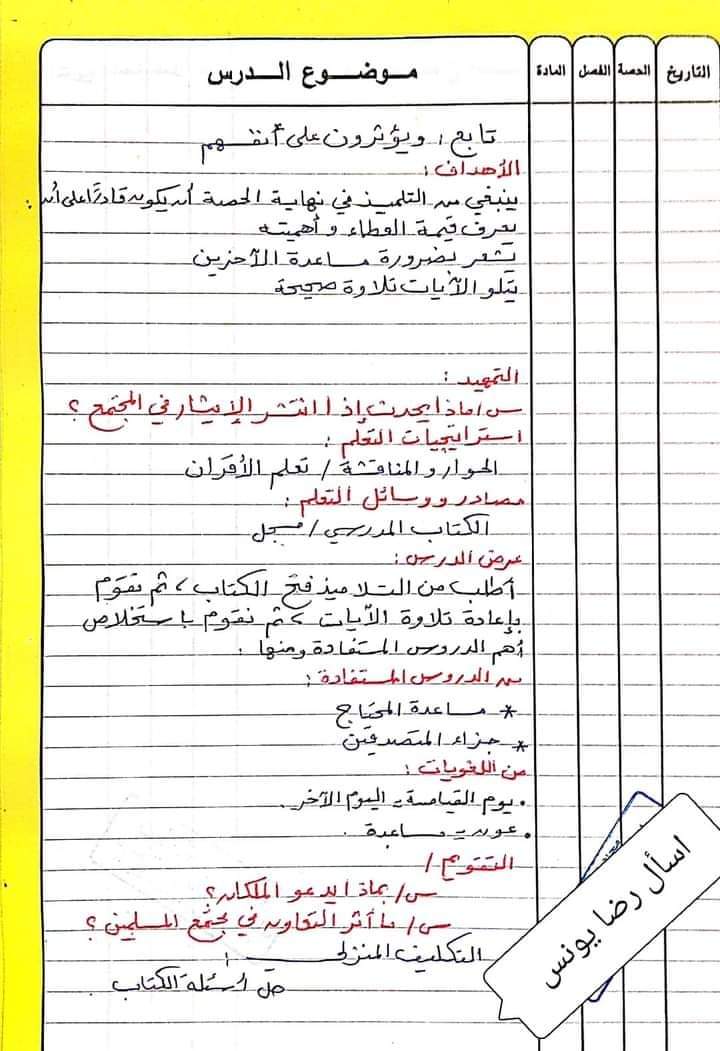 التاريخ
الحصة
الفصل
المادة
موضوع الدرس
تابع، ويؤثرون على أنفسهم
الأهداف:
ينبغي من التلميذ في نهاية الحصة أن يكون قادرًا على أن:
يعرف قيمة العطاء و أهميته
يشعر بضرورة مساعدة الآخرين
يتلو الآيات تلاوة صحيحة
التمهيد:
س/ ماذا يحدث إذا انتشر الإيثار في المجتمع؟
استراتيجيات التعلم:
الحوار والمناقشة / تعلم الأقران
مصادر ووسائل التعلم:
الكتاب المدرسي / مسجل
عرض الدرس:
أطلب من التلاميذ فتح الكتاب، ثم نقوم
بإعادة تلاوة الآيات، ثم نقوم باستخلاص
أهم الدروس المستفادة ومنها.
من الدروس المستفادة:
* مساعدة المحتاج
* جزاء المتصدقين
من اللغويات:
. يوم القيامة = اليوم الآخر.
. عون = مساعدة.
التقويم /
س/ بماذا يدعو الملكان؟
س/ ما أثر التعاون في مجتمع المسلمين؟
التكليف المنزلي:
حل أسئلة الكتاب.
اسأل رضا يونس